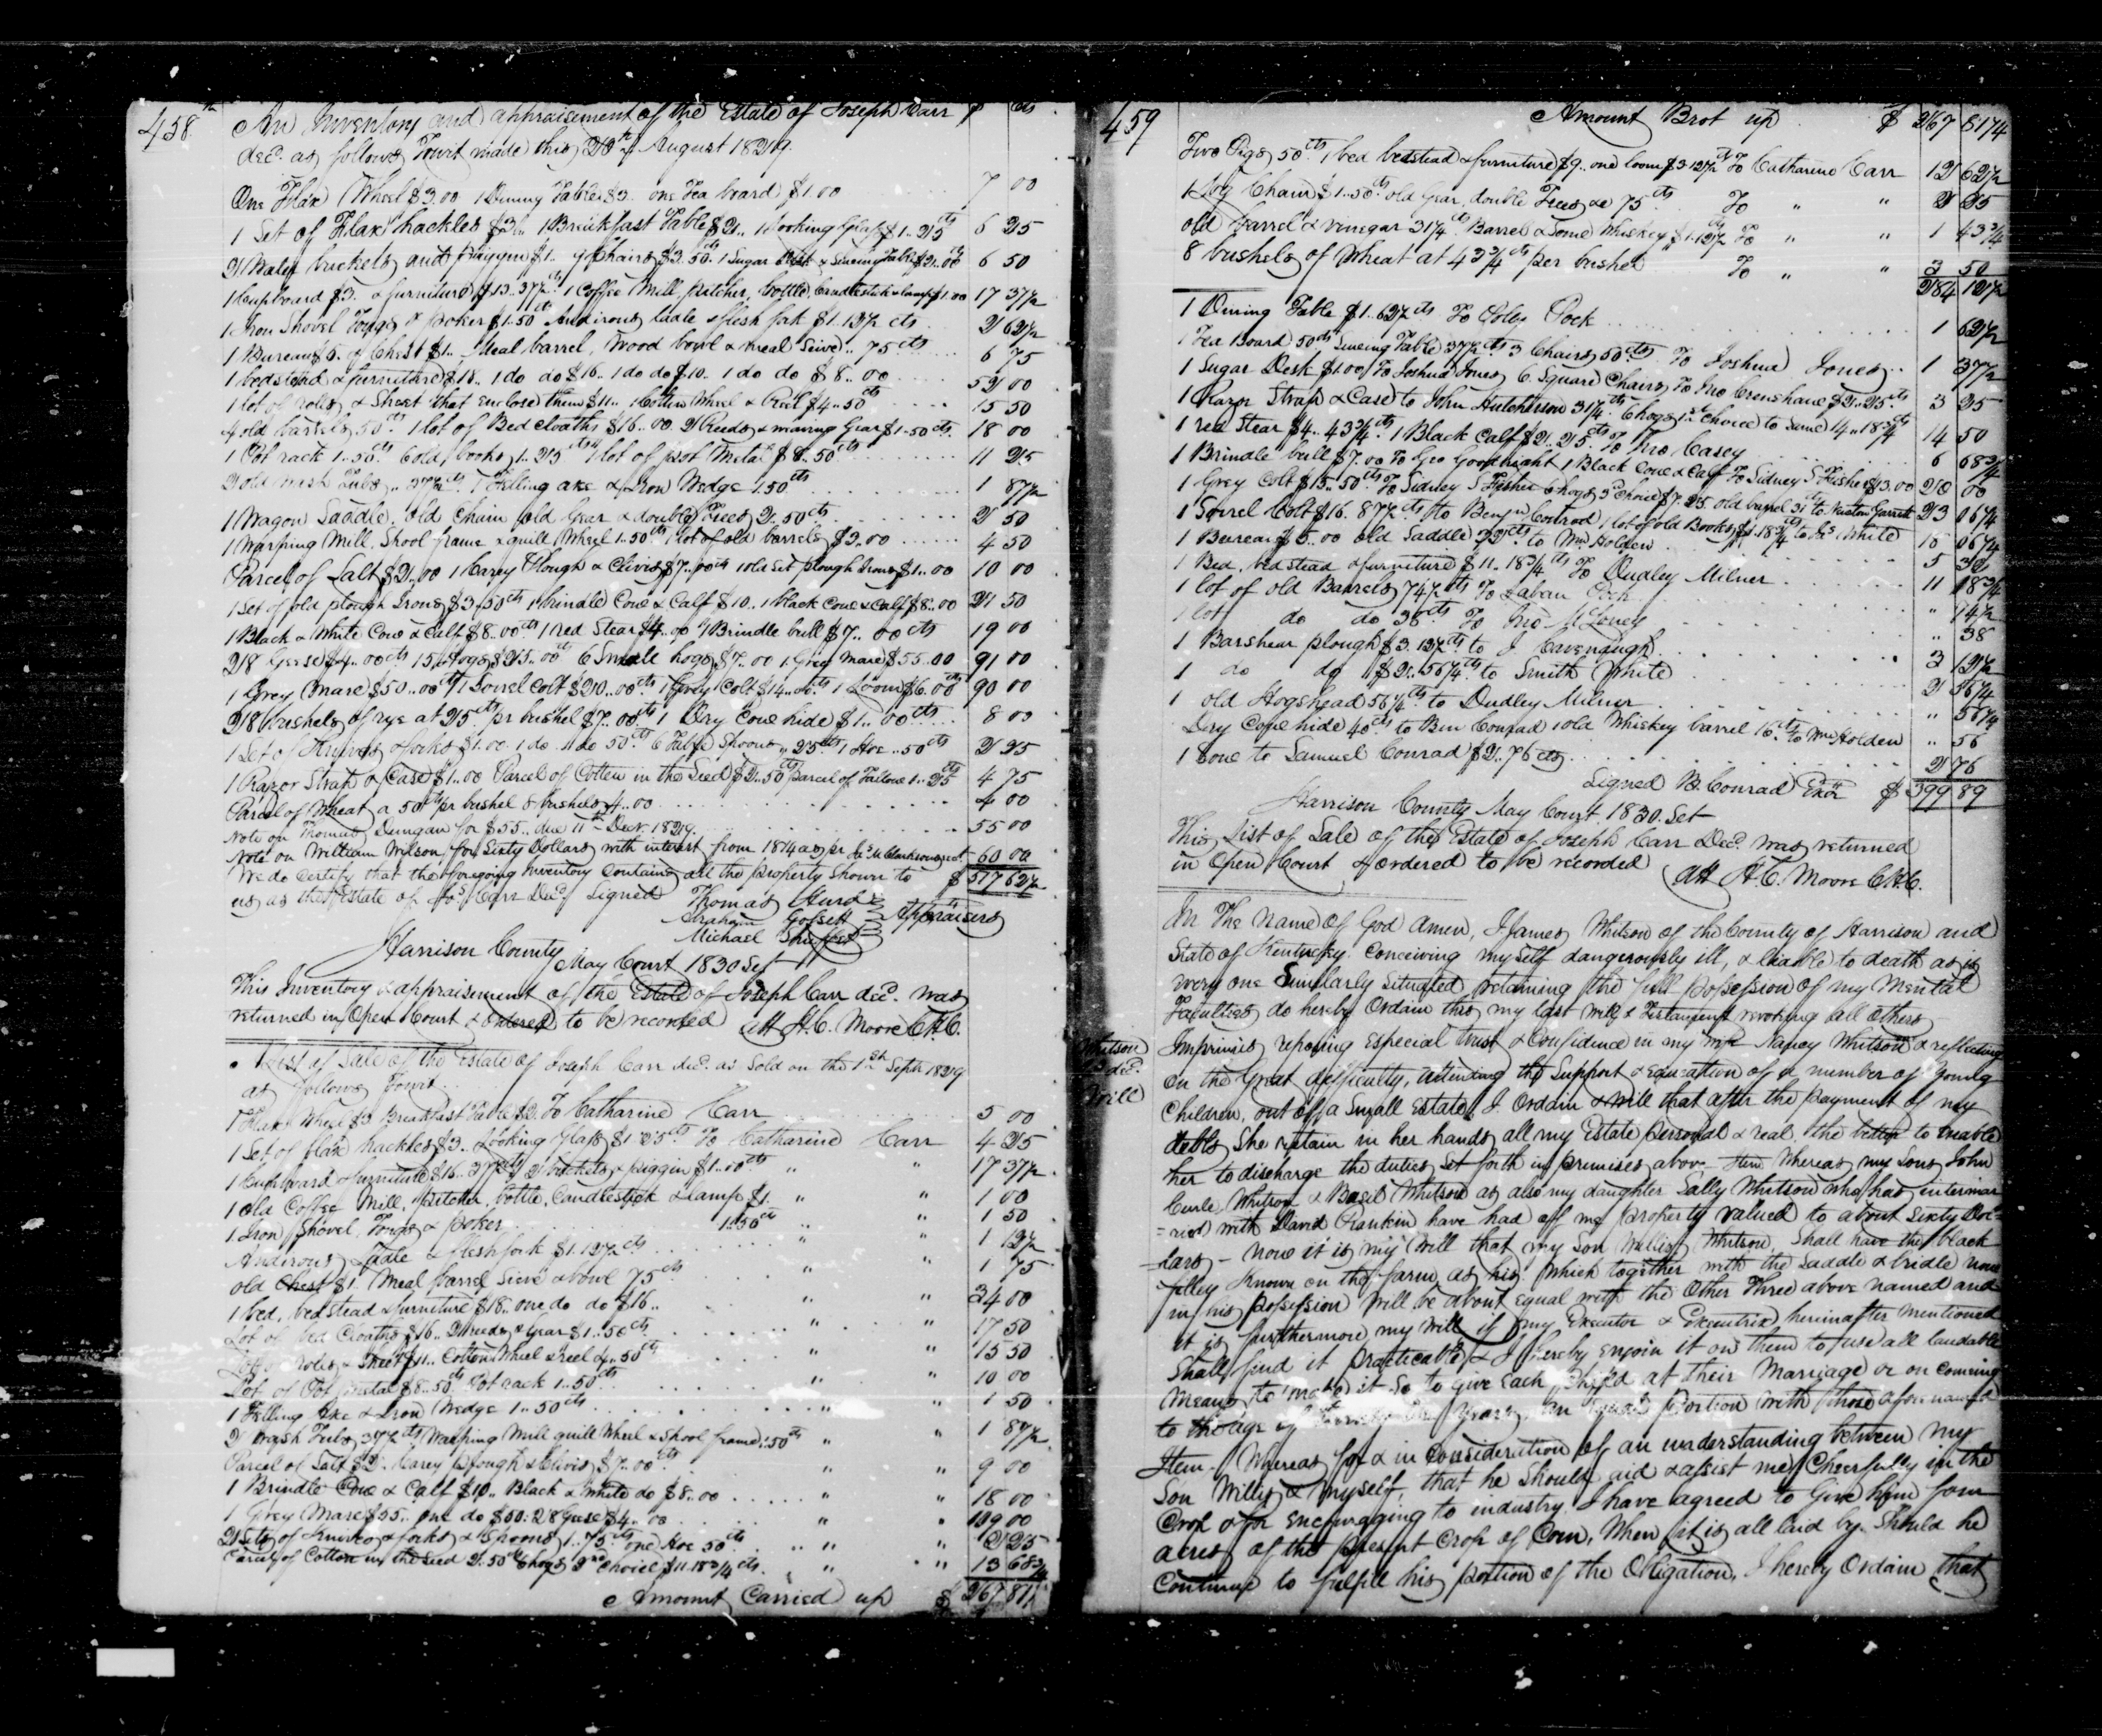 458
An Inventory and appraisement of the Estate of Joseph Carr $ cts
decd. as follows Towit made this 28th of August 1829
One Flax Wheel $3.00 1 Dining Table $3. one Tea board $1.00 7 00
1 Set of Flax hackles $3.. 1 Breickfast Table $2.. 1 Looking Glass $1..25cts 6 25
2 Water buckets and piggin $1.. 9 Chairs $3.50. 1 Sugar Desk & Sewing Table $2..00 6 50
1 Cupboard $3. & furniture $13..37½cts 1 Coffee Mill, pitcher, bottle, Candlestick & lamp $1.00 17 37½
1 Iron Shovel Tongs & poker $1.50 Andirons ladle & flesh fork $1.12½ cts 2 62½
1 Bureau $5. old Chest $1.. Meal barrel, Wood bowl & meal Seive.. 75cts 6 75
1 bedstead & furniture $18.. 1 do do $16.. 1 do do $10.. 1 do do $8..00 52 00
1 lot of rolls & Sheet that enclose them $11.. 1 Cotton Wheel & Reel $4..50cts 15 50
4 old barrels 50cts 1 lot of Bed cloaths $16..00 2 Reeds & weaving Gear $1..50cts 18 00
1 Pot rack 1..50cts 6 old books 1..25cts 1 lot of pot Metal $8..50cts 11 25
2 old wash Tubs.. 37½cts 1 Felling axe & Iron Wedge 1.50cts 1 87½
1 Wagon Saddle, old Chain old Gear & double Trees 2..50cts 2 50
1 Warping Mill, Spool frame & quill Wheel 1..50cts 1 lot of old barrels $3.00 4 50
Parcel of Salt $2..00 1 Carey Plough & Clivis $7..00cts 1 old Set plough Irons $1..00 10 00
1 Set of old plough Irons $3.50cts 1 brindle Cow & Calf $10.. 1 black Cow & Calf $8..00 21 50
1 Black & White Cow & Calf $8.00cts 1 red Stear $4..00 1 Brindle bull $7..00cts 19 00
28 Geese $4..00cts 15 Hogs $25..00cts 6 Small hogs $7.00 1 Grey Mare $55.00 91 00
1 Grey Mare $50..00cts 1 Sorrel Colt $20..00cts 1 Grey Colt $14..00cts 1 Loom $6.00cts 90 00
28 bushels of rye at 25cts pr bushel $7..00cts 1 Dry Cow hide $1..00cts 8 00
1 Set of Knives & forks $1.00 1 do. do 50cts 6 Table Spoons.. 25cts 1 Hoe..50cts 2 25
1 Razor Strap & Case $1..00 Parcel of Cotten in the Seed $2..50cts parcel of Tallow 1..25 4 75
Parcel of Wheat a 50cts pr bushel 8 bushels 4..00 4 00
Note on Thomas Dungan for $55.. due 11th Decr. 1829 55 00
Note on William Wilson for Sixty Dollars with interest from 1814 as pr 60 00
We do Certify that the foregoing Inventory Contains all the property Shown to $ 517 62½
us as the Estate of Jos. Carr Decd Signed Thomas Hurd
Abraham Gossett Appraisers
Michael
Harrison County
May Court 1830 Set
This Inventory & appraisement of the Estate of Joseph Carr decd. was
returned in Open Court & ordered to be recorded Att H.C. Moore C.H.C.
A List of Sale of the Estate of Joseph Carr decd. as Sold on the 1st Septr. 1829
as follows Towit
1 Flax Wheel $3 Breakfast Table $2 To Catharine Carr 5 00
1 Set of flax hackles $3. Looking Glass $1 25cts To Catharine Carr 4 25
1 Cupboard & furniture $16.37½cts 2 buckets & piggin $1..00cts " " 17 37½
1 old Coffee Mill, pitcher, bottle, Candlestick & lamp $1 " " 1 00
1 Iron Shovel, Tongs & poker 1.50cts " " 1 50
Andirons Ladle & flesh fork $1.12½cts " " 1 12½
old Chest $1 Meal barrel Sieve & bowl 75cts " " 1 75
1 bed, bedstead & furniture $18.. one do do $16.. " " 34 00
Lot of bed Cloaths $16.. 2 reeds & Gear $1..50cts " " 17 50
Lot of rolls & Sheet $11.. Cotton Wheel & reel 4..50cts " " 15 50
Lot of Pot Metal $8..50cts Pot rack 1..50cts " " 10 00
1 Felling Axe & Iron Wedge 1..50cts " " 1 50
2 Wash Tubs 37½cts Warping Mill quill Wheel & Spool frame 1.50cts " " 1 87½
Parcel of Salt $2. Carey Plough & Clivis $7..00cts " " 9 00
1 Brindle Cow & Calf $10.. Black & White do $8..00 " " 18 00
1 Grey Mare $55.. one do $50. 28 Geese $4..00 " " 109 00
2 Sets of Knives & forks & Spoons 1..75cts one Hoe 50cts " " 2 25
Parcel of Cotton in the Seed 2.50cts 6 hogs 2nd choice $11.18¾cts " " 13 68¾
Amount Carried up $ 267 81¼
459
Amount Brot up $ 267 81¼
Two Pigs 50cts 1 bed bedstead & furniture $9.. one loom $3.12½cts To Catharine Carr 12 62½
1 Log Chain $1..50cts old Gear, double Trees &c 75cts To " " 2 25
old barrel & vinegar 31¼cts Barrel & Some Whiskey $1.12½ To " " 1 43¾
8 bushels of Wheat at 43¾cts per bushel To " " 3 50
284 12½
1 Dining Table $1..62½cts To Colby Cock 1 62½
1 Tea Board 50cts Sewing Table 37½cts 3 Chairs 50cts To Joshua Jones 1 37½
1 Sugar Desk $1.00 To Joshua Jones 6 Square Chairs To Jno Crenshaw $2..25cts 3 25
1 Razor Strap & Case to John Hutcherson 31¼cts 6 hogs 1st Choice to Same 14..18¾ 14 50
1 red Stear $4..43¾cts 1 Black Calf $2..25cts To Jno Casey 6 68¾
1 Brindle bull $7.00 To Geo Goodnight 1 Black Cow & Calf To Sidney S Fisher $13.00 20 00
1 Grey Colt $15..50cts To Sidney S Fisher 6 hogs 3d choice $7.25. old barrel 31cts to Garrett 23 06¼
1 Sorrel Colt $16.87½cts to Benjn Conrad 1 lot of old Books $1.18¾cts to White 18 06¼
1 Bureau $5.00 old Saddle 32cts to Wm Holden 5 32
1 Bed, bedstead & furniture $11.18¾cts To Dudley Milner 11 18¾
1 lot of old Barrels 14½cts To Laban Cock " 14½
1 lot do do 38cts To Jno " 38
1 Barshear plough $3.12½cts to J Cavenaugh 3 12½
1 do do $2..56¼cts to Smith White 2 56¼
1 old Hogshead 56¼cts to Dudley Milner " 56¼
Dry Cow hide 40cts to Ben Conrad 1 old Whiskey barrel 16cts to Wm Holden " 56
1 Sow to Samuel Conrad $2..76cts 2 76
Signed B. Conrad Exor $ 399 89
Harrison County May Court 1830. Set
This List of Sale of the Estate of Joseph Carr Decd. was returned
in Open Court & ordered to be recorded Att H.C. Moore C.H.C.
In The Name of God Amen, I James Whitson of the County of Harrison and
State of Kentucky. Conceiving myself dangerously ill, & liable to death as is
every one Similarly Situated retaining the full possession of my Mental
Faculties do hereby Ordain this my last Will & Testament revoking all others
Whitson
decd.
Will
Imprimis reposing especial trust & Confidence in my wife Nancy Whitson & reflecting
on the Great difficulty, attending the Support & education of a number of Young
Children, out of a Small Estate, I Ordain & will that after the payment of my
debts She retain in her hands all my Estate personal & real. the better to enable
her to discharge the duties Set forth in premises above Item Whereas my Sons John
Curle Whitson & Basil Whitson as also my daughter Sally Whitson who has intermar
=ried with David Rankin have had of me property valued to about Sixty Dol=
=lars - now it is my Will that my Son Willis Whitson, Shall have the black
filley Known on the farm as his which together with the Saddle & bridle now
in his possession Will be about equal with the Other Three above named and
it is furthermore my Will if my Executor & Executrix hereinafter mentioned
Shall find it practicable & I hereby enjoin it on them to use all laudable
Means to make it So to give Each Child at their Marriage or on coming
to the age of Years, an equal portion with those afore named
Item. Whereas for & in Consideration of an understanding between my
Son Willis & Myself, that he Should aid & assist me Cheerfully in the
Crop & for encouraging to industry I have agreed to Give him four
acres of the present Crop of Corn, When it is all laid by. Should he
Continue to fulfill his portion of the Obligation, I hereby Ordain that